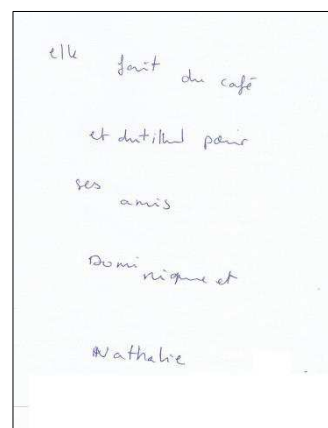 elle fait du café
et du tilleul pour
ses amis
Dominique et
Nathalie